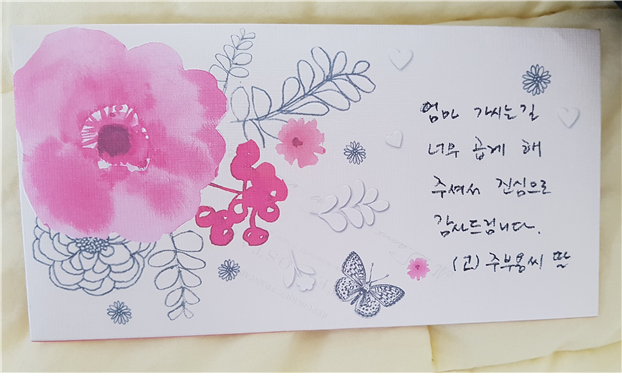 엄마 가시는길
너무 곱게 해
주셔서 진심으로
감사드립니다.
(고) 주부용씨 딸